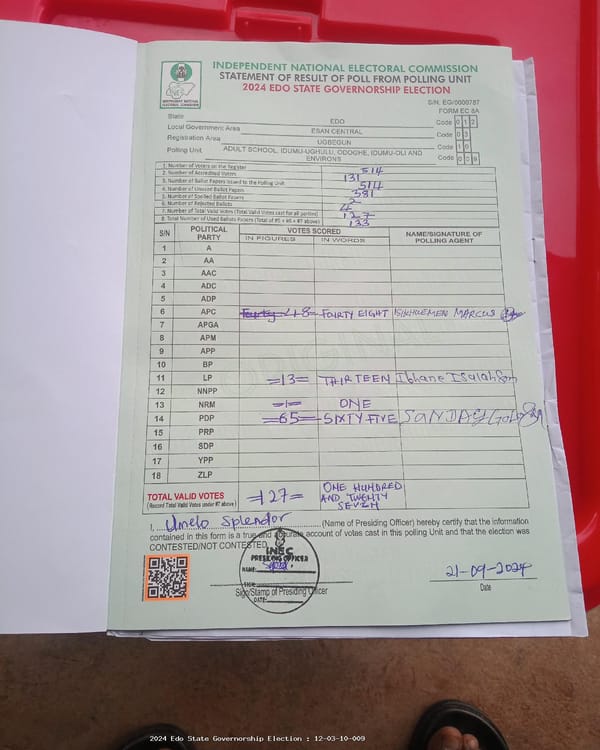 INDEPENDENT NATIONAL ELECTORAL COMMISSION
STATEMENT OF RESULT OF POLL FROM POLLING UNIT
2024 EDO STATE GOVERNORSHIP ELECTION
S/N. EG/0000787
FORM EC 8A
State EDO Code 0 1 2
Local Government Area ESAN CENTRAL Code 0 3
Registration Area UGBEGUN Code 1 0
Polling Unit ADULT SCHOOL, IDUMU-UGHULU, ODOGHE, IDUMU-OLI AND ENVIRONS Code 0 0 9
1. Number of Voters on the Register 514
2. Number of Accredited Voters 131
3. Number of Ballot Papers Issued to the Polling Unit 514
4. Number of Unused Ballot Papers 381
5. Number of Spoiled Ballot Papers 2
6. Number of Rejected Ballots 4
7. Number of Total Valid Votes (Total Valid Votes cast for all parties) 127
8. Total Number of Used Ballots Papers (Total of #5 + #6 + #7 above) 133
S/N POLITICAL PARTY VOTES SCORED NAME/SIGNATURE OF POLLING AGENT
IN FIGURES IN WORDS
1 A
2 AA
3 AAC
4 ADC
5 ADP
6 APC Fourty 48= FOURTY EIGHT MARCUS
7 APGA
8 APM
9 APP
10 BP
11 LP =13= THIRTEEN Ibhane Isaiah
12 NNPP
13 NRM =1= ONE
14 PDP =65= SIXTY FIVE SANDAY
15 PRP
16 SDP
17 YPP
18 ZLP
TOTAL VALID VOTES =127= ONE HUNDRED AND TWENTY SEVEN
(Record Total Valid Votes under #7 above)
I, Umelo Splendor (Name of Presiding Officer) hereby certify that the information
contained in this form is a true and accurate account of votes cast in this polling Unit and that the election was
CONTESTED/NOT CONTESTED
INEC
PRESIDING OFFICER
NAME:
SIGN:
DATE:
Sign/Stamp of Presiding Officer
21-09-2024
Date
2024 Edo State Governorship Election : 12-03-10-009